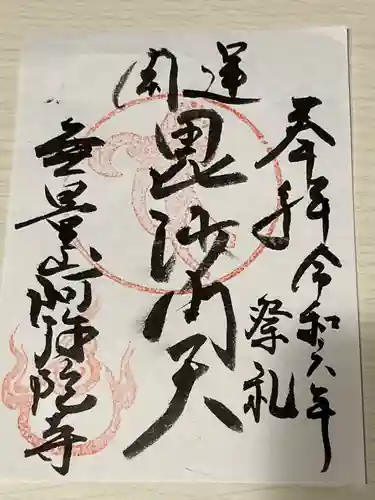 開運
奉拝
令和六年
祭礼
毘沙門天
無量山阿弥陀寺